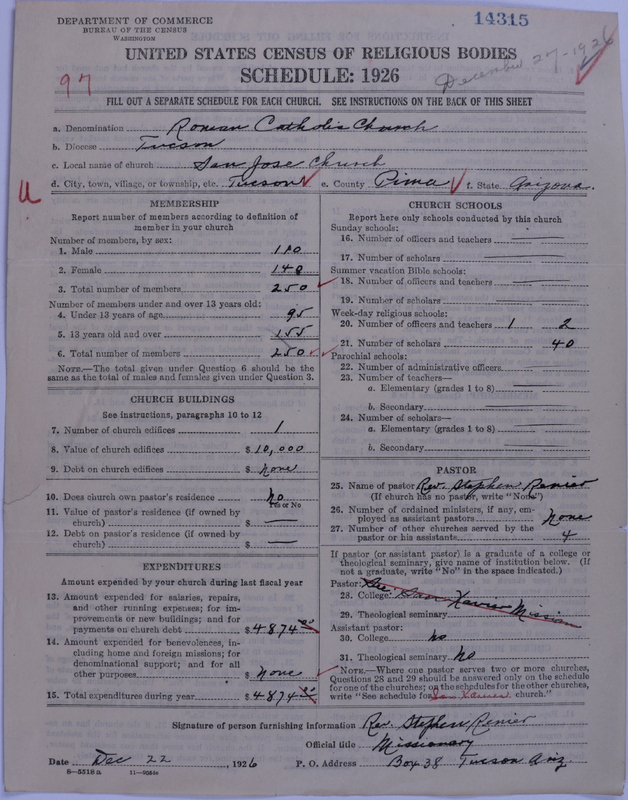 DEPARTMENT OF COMMERCE
BUREAU OF THE CENSUS
WASHINGTON
14315
December 27-1926
97
UNITED STATES CENSUS OF RELIGIOUS BODIES
SCHEDULE: 1926
FILL OUT A SEPARATE SCHEDULE FOR EACH CHURCH. SEE INSTRUCTIONS ON THE BACK OF THIS SHEET
a. Denomination Roman Catholic Church
b. Diocese Tucson
c. Local name of church San Jose Church
d. City, town, village, or township, etc. Tucson e. County Pima f. State Arizona.
MEMBERSHIP
Report number of members according to definition of member in your church
Number of members, by sex:
1. Male 110
2. Female 140
3. Total number of members 250
Number of members under and over 13 years old:
4. Under 13 years of age 95
5. 13 years old and over 155
6. Total number of members 250
NOTE.—The total given under Question 6 should be the same as the total of males and females given under Question 3.
CHURCH BUILDINGS
See instructions, paragraphs 10 to 12
7. Number of church edifices 1
8. Value of church edifices $ 10,000
9. Debt on church edifices $ None
10. Does church own pastor's residence No
Yes or No
11. Value of pastor's residence (if owned by church) $ —
12. Debt on pastor's residence (if owned by church) $ —
EXPENDITURES
Amount expended by your church during last fiscal year
13. Amount expended for salaries, repairs, and other running expenses; for improvements or new buildings; and for payments on church debt $ 4874 00
14. Amount expended for benevolences, including home and foreign missions; for denominational support; and for all other purposes $ None
15. Total expenditures during year $ 4874 00
CHURCH SCHOOLS
Report here only schools conducted by this church
Sunday schools:
16. Number of officers and teachers —
17. Number of scholars —
Summer vacation Bible schools:
18. Number of officers and teachers —
19. Number of scholars —
Week-day religious schools:
20. Number of officers and teachers 1 2
21. Number of scholars 40
Parochial schools:
22. Number of administrative officers —
23. Number of teachers—
a. Elementary (grades 1 to 8) —
b. Secondary —
24. Number of scholars—
a. Elementary (grades 1 to 8) —
b. Secondary —
PASTOR
25. Name of pastor Rev. Stephen Renier
(If church has no pastor, write "None")
26. Number of ordained ministers, if any, employed as assistant pastors None
27. Number of other churches served by the pastor or his assistants 4
If pastor (or assistant pastor) is a graduate of a college or theological seminary, give name of institution below. (If not a graduate, write "No" in the space indicated.)
Pastor:
28. College See San Xavier Mission
29. Theological seminary
Assistant pastor:
30. College No
31. Theological seminary No
NOTE.—Where one pastor serves two or more churches, Questions 28 and 29 should be answered only on the schedule for one of the churches; on the schedules for the other churches, write "See schedule for San Xavier church."
Signature of person furnishing information Rev. Stephen Renier
Official title Missionary
Date Dec 22, 1926 P. O. Address Box 38 Tucson Ariz
8—5318a 11—9054s